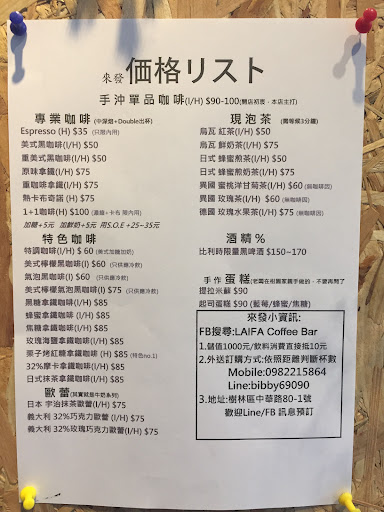 來發 価格リスト
手沖單品咖啡(I/H) $90-100(開店初衷，本店主打)
專業咖啡(中深焙+Double出杯)
Espresso (H) $35 (只限內用)
美式黑咖啡(I/H) $50
重美式黑咖啡(I/H) $50
原味拿鐵(I/H) $75
重咖啡拿鐵(I/H) $75
熱卡布奇諾 (H) $75
1+1咖啡(H) $100 (濃縮+卡布 限內用)
加糖+5元 加鮮奶+5元 用S.O.E +25~35元
特色咖啡
特調咖啡(I/H) $ 60 (美式加糖加奶)
美式檸檬黑咖啡(I) $60 (只供應冷飲)
氣泡黑咖啡(I) $60 (只供應冷飲)
美式檸檬氣泡黑咖啡(I) $75 (只供應冷飲)
黑糖拿鐵咖啡(I/H) $85
蜂蜜拿鐵咖啡 (I/H) $85
焦糖拿鐵咖啡(I/H) $85
玫瑰海鹽拿鐵咖啡(I/H) $85
栗子烤紅糖拿鐵咖啡 (H) $85 (特色no.1)
32%摩卡拿鐵咖啡(I/H) $85
日式抹茶拿鐵咖啡(I/H) $85
歐蕾(其實就是牛奶系列)
日本 宇治抹茶歐蕾(I/H) $75
義大利 32%巧克力歐蕾(I/H) $75
義大利 32%玫瑰巧克力歐蕾(I/H) $75
現泡茶 (需等候3分鐘)
烏瓦 紅茶(I/H) $50
烏瓦 鮮奶茶(I/H) $75
日式 蜂蜜煎茶(I/H) $50
日式 蜂蜜煎奶茶(I/H) $75
異國 蜜桃洋甘菊茶(I/H) $60 (無咖啡因)
異國 玫瑰茶(I/H) $60 (無咖啡因)
德國 玫瑰水果茶(I/H) $75 (無咖啡因)
酒精%
比利時限量黑啤酒 $150~170
手作 蛋糕
提拉米蘇 $90
起司蛋糕 $90 (藍莓/蜂蜜/焦糖)
來發小資訊:
FB搜尋:LAIFA Coffee Bar
1.儲值1000元/飲料消費直接抵10元
2.外送訂購方式:依照距離判斷杯數
Mobile:0982215864
Line:bibby69090
3.地址:樹林區中華路80-1號
歡迎Line/FB 訊息預訂